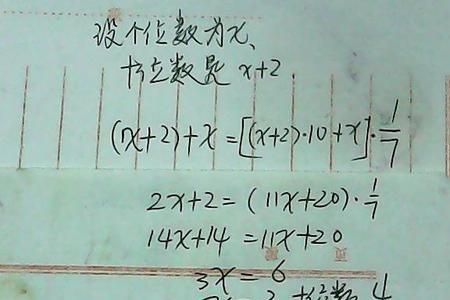 设个位数为x、
十位数是 x+2
(x+2)+x=[(x+2)·10+x]·1/7
2x+2=(11x+20)·1/7
14x+14=11x+20
3x=6
十位数 4